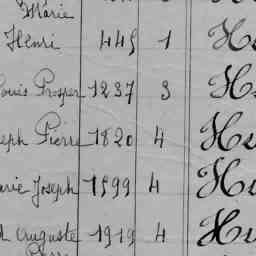 Marie
Henri 445 1 He
Louis Prosper 1237 3 He
Joseph Pierre 1820 4 He
Marie Joseph 1599 4 Hu
Auguste 1919 4 Hu